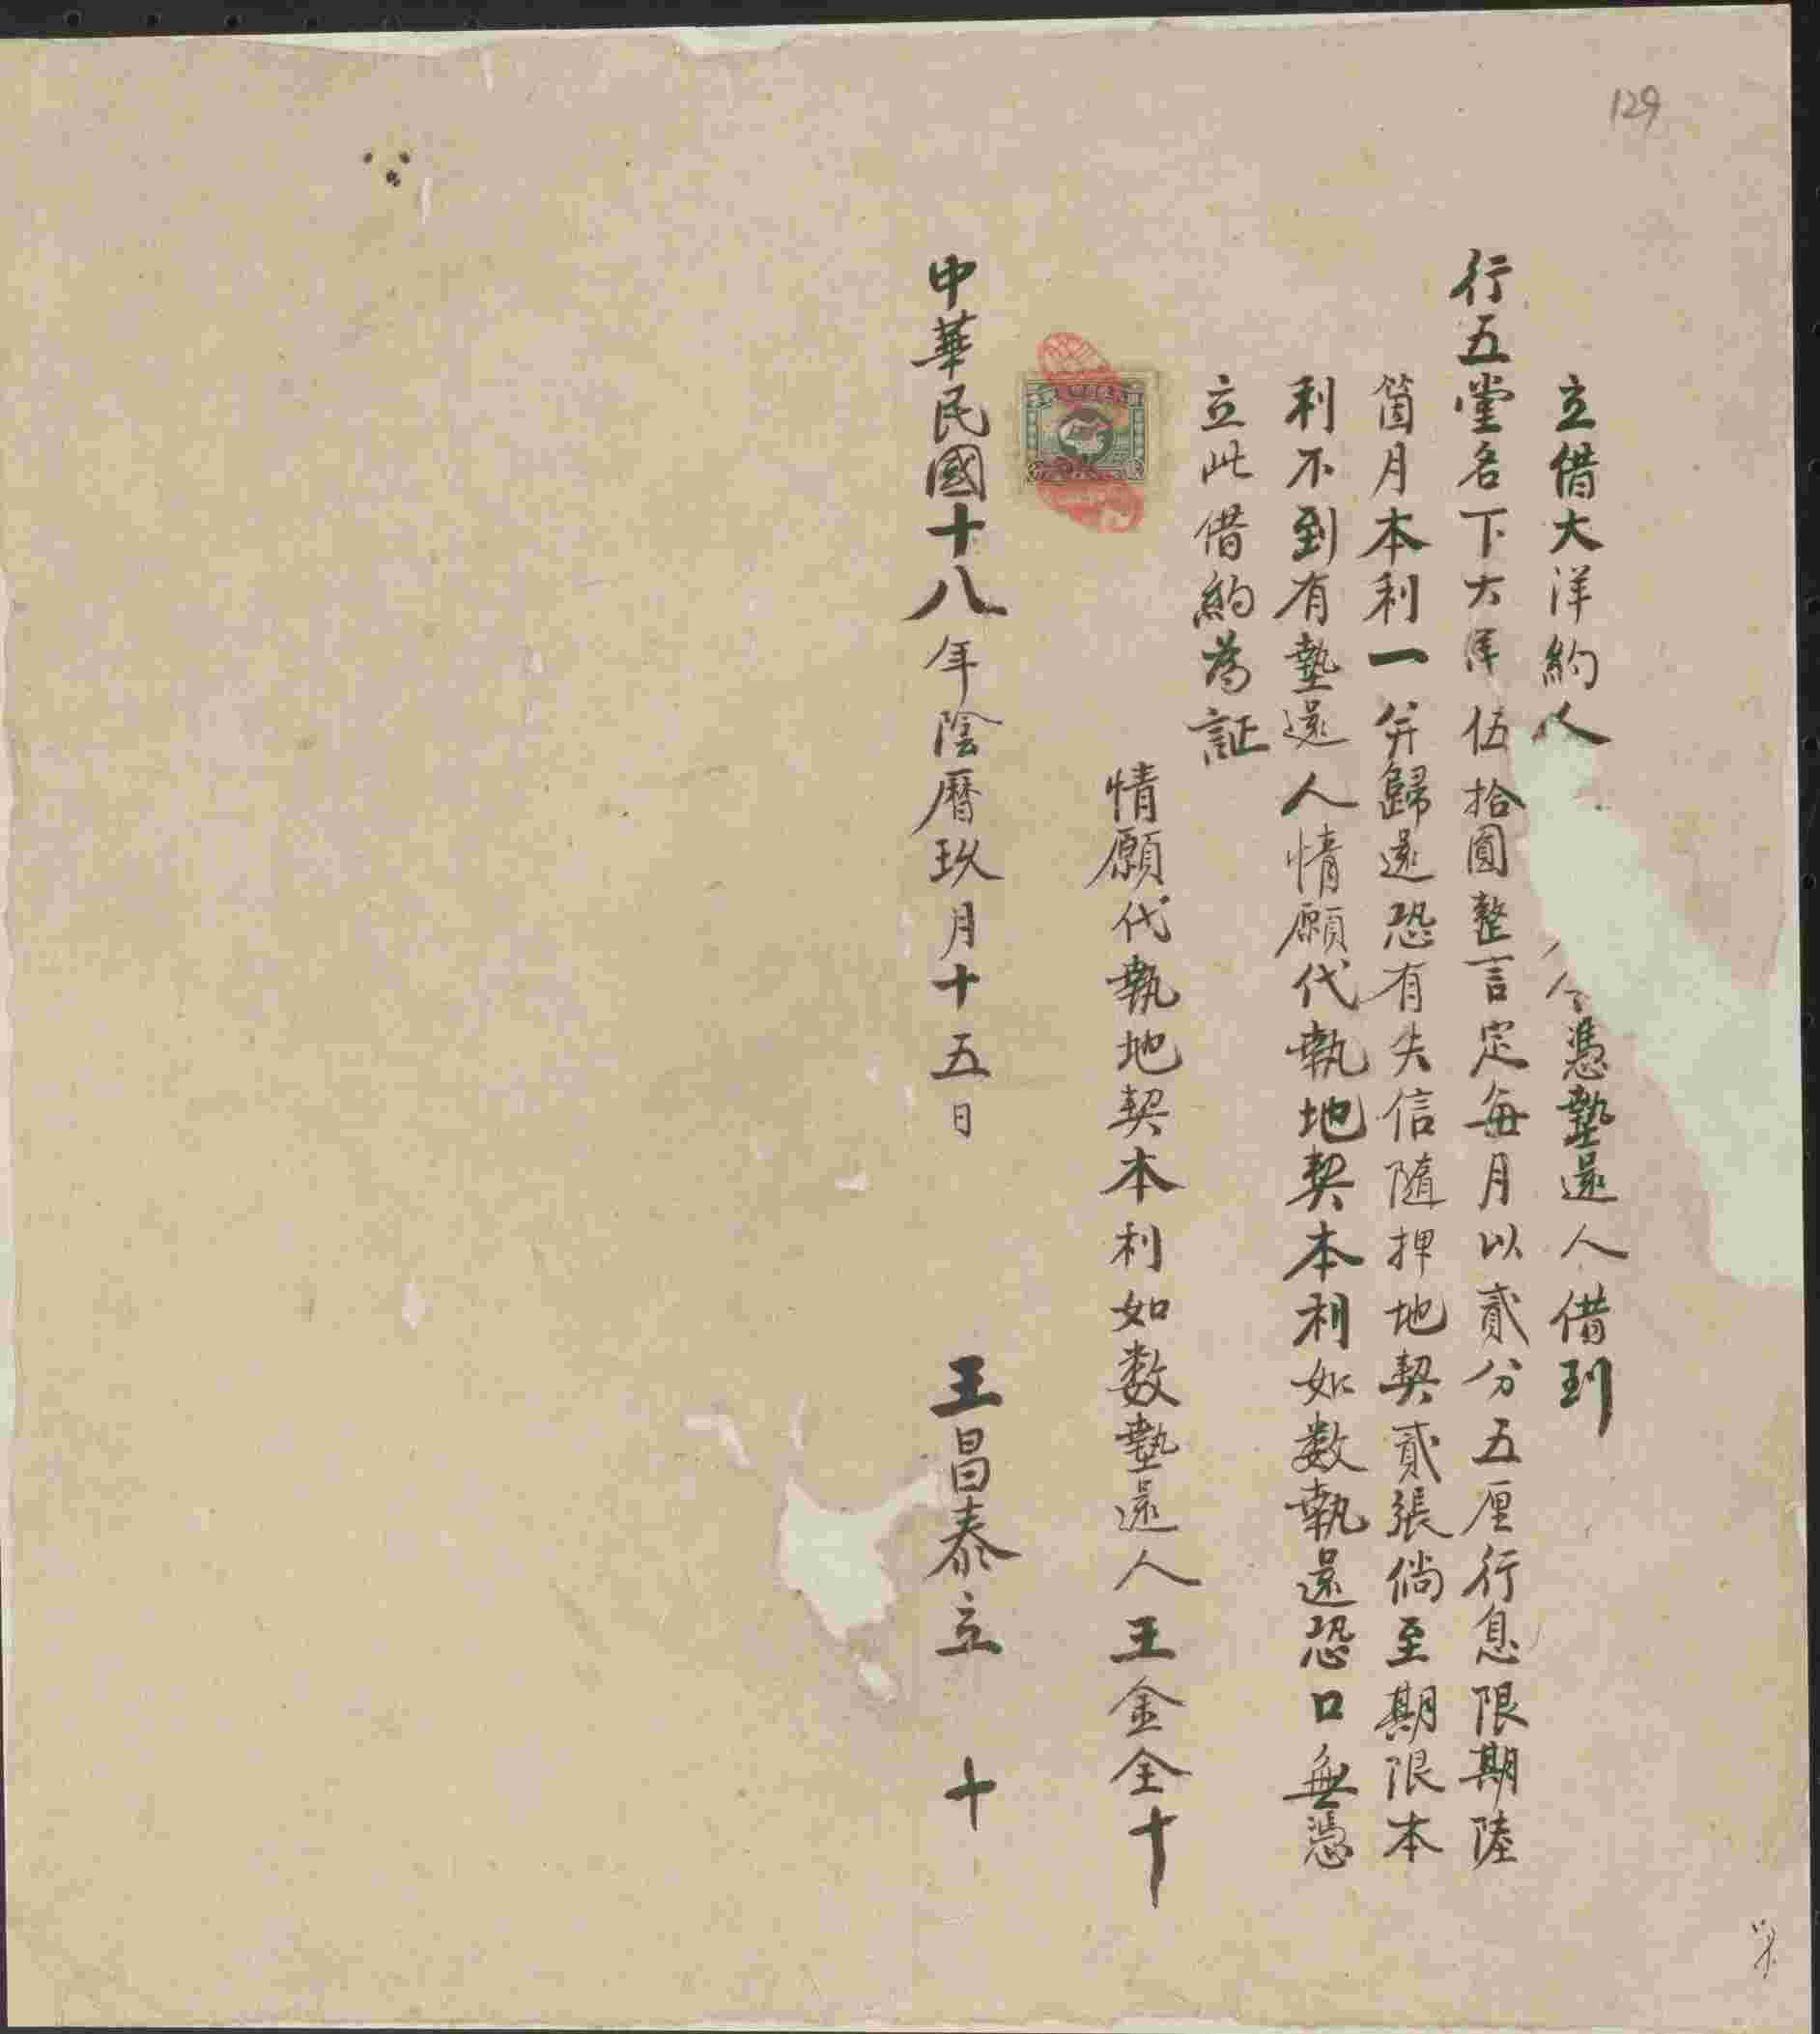 129
立借大洋約人
今憑墊還人借到
行五堂名下大洋伍拾圓整言定每月以貳分五厘行息限期陸
箇月本利一并歸還恐有失信隨押地契貳張倘至期限本
利不到有墊還人情願代執地契本利如数執還恐口無憑
立此借約為証
情願代執地契本利如数墊還人王金全十
中華民國十八年陰曆玖月十五日
王昌泰立 十